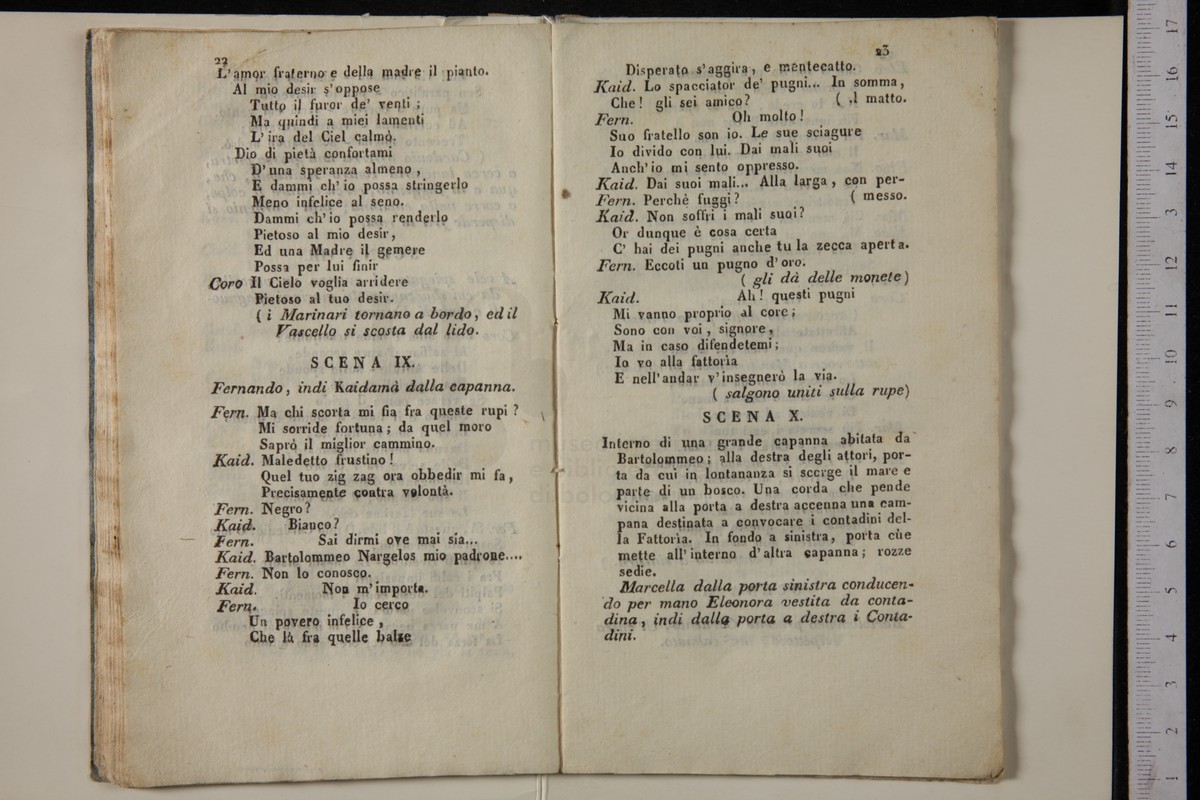 22
L' amor fraterno e della madre il pianto.
Al mio desir s' oppose
Tutto il furor de' venti ;
Ma quindi a miei lamenti
L' ira del Ciel calmò.
Dio di pietà confortami
D' una speranza almeno ,
E dammi ch' io possa stringerlo
Meno infelice al seno.
Dammi ch' io possa renderlo
Pietoso al mio desir,
Ed una Madre il gemere
Possa per lui finir
Coro Il Cielo voglia arridere
Pietoso al tuo desir.
( i Marinari tornano a bordo, ed il
Vascello si scosta dal lido.
SCENA IX.
Fernando, indi Kaidamà dalla capanna.
Fern. Ma chi scorta mi fia fra queste rupi ?
Mi sorride fortuna ; da quel moro
Saprò il miglior cammino.
Kaid. Maledetto frustino !
Quel tuo zig zag ora obbedir mi fa,
Precisamente contra volontà.
Fern. Negro ?
Kaid. Bianco ?
Fern. Sai dirmi ove mai sia...
Kaid. Bartolommeo Nargelos mio padrone....
Fern. Non lo conosco.
Kaid. Non m' importa.
Fern. Io cerco
Un povero infelice ,
Che là fra quelle balze
23
Disperato s' aggira , e mentecatto.
Kaid. Lo spacciator de' pugni... In somma,
Che ! gli sei amico ? ( .l matto.
Fern. Oh molto !
Suo fratello son io. Le sue sciagure
Io divido con lui. Dai mali suoi
Anch' io mi sento oppresso.
Kaid. Dai suoi mali... Alla larga , con per-
Fern. Perchè fuggi ? ( messo.
Kaid. Non soffri i mali suoi ?
Or dunque è cosa certa
C' hai dei pugni anche tu la zecca aperta.
Fern. Eccoti un pugno d' oro.
( gli dà delle monete )
Kaid. Ah ! questi pugni
Mi vanno proprio al core ;
Sono con voi , signore ,
Ma in caso difendetemi ;
Io vo alla fattoria
E nell' andar v' insegnerò la via.
( salgono uniti sulla rupe)
SCENA X.
Interno di una grande capanna abitata da
Bartolommeo ; alla destra degli attori, por-
ta da cui in lontananza si scerge il mare e
parte di un bosco. Una corda che pende
vicina alla porta a destra accenna una cam-
pana destinata a convocare i contadini del-
la Fattoria. In fondo a sinistra, porta cùe
mette all' interno d' altra capanna ; rozze
sedie.
Marcella dalla porta sinistra conducen-
do per mano Eleonora vestita da conta-
dina, indi dalla porta a destra i Conta-
dini.